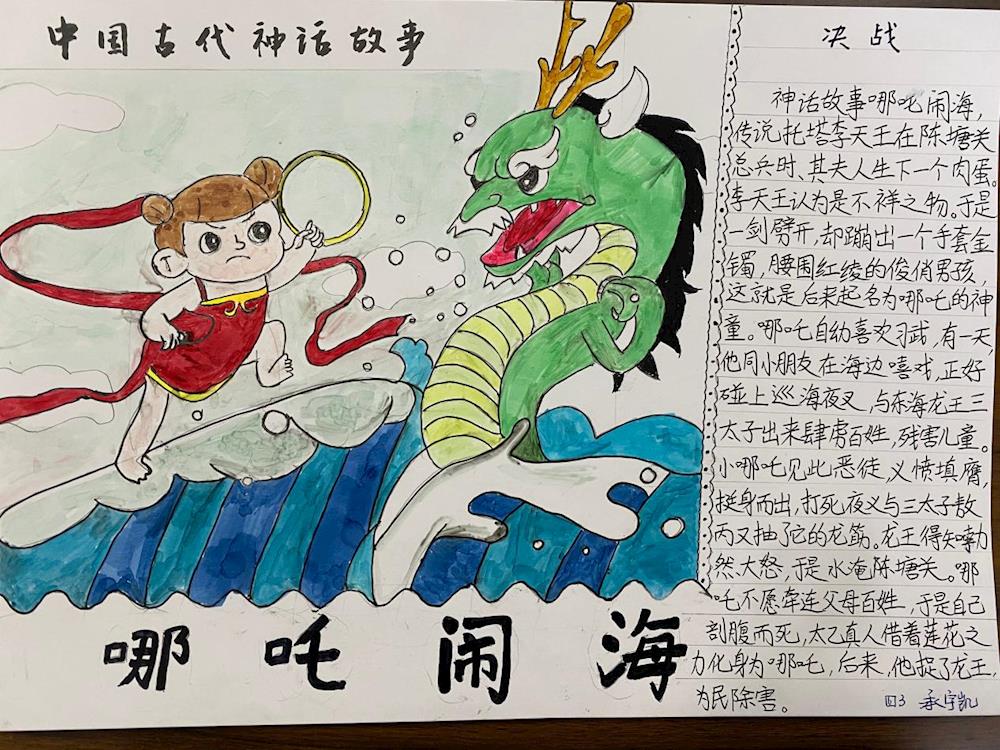 中国古代神话故事
决战
神话故事哪吒闹海，
传说托塔李天王在陈塘关
总兵时、其夫人生下一个肉蛋。
李天王认为是不祥之物。于是
一剑劈开，却蹦出一个手套金
镯，腰围红绫的俊俏男孩，
这就是后来起名为哪吒的神
童。哪吒自幼喜欢习武，有一天，
他同小朋友在海边嘻戏，正好
碰上巡海夜叉，与东海龙王三
太子出来肆虏百姓，残害儿童。
小哪吒见此恶徒，义愤填膺，
挺身而出，打死夜义与三太子敖
丙又抽了它的龙筋。龙王得知勃
然大怒，于是水淹陈塘关。哪
吒不愿牵连父母百姓，于是自己
剖腹而死，太乙真人借着莲花之
力化身为哪吒，后来，他捉了龙王，
为民除害。
四3 承宇凯
哪吒闹海